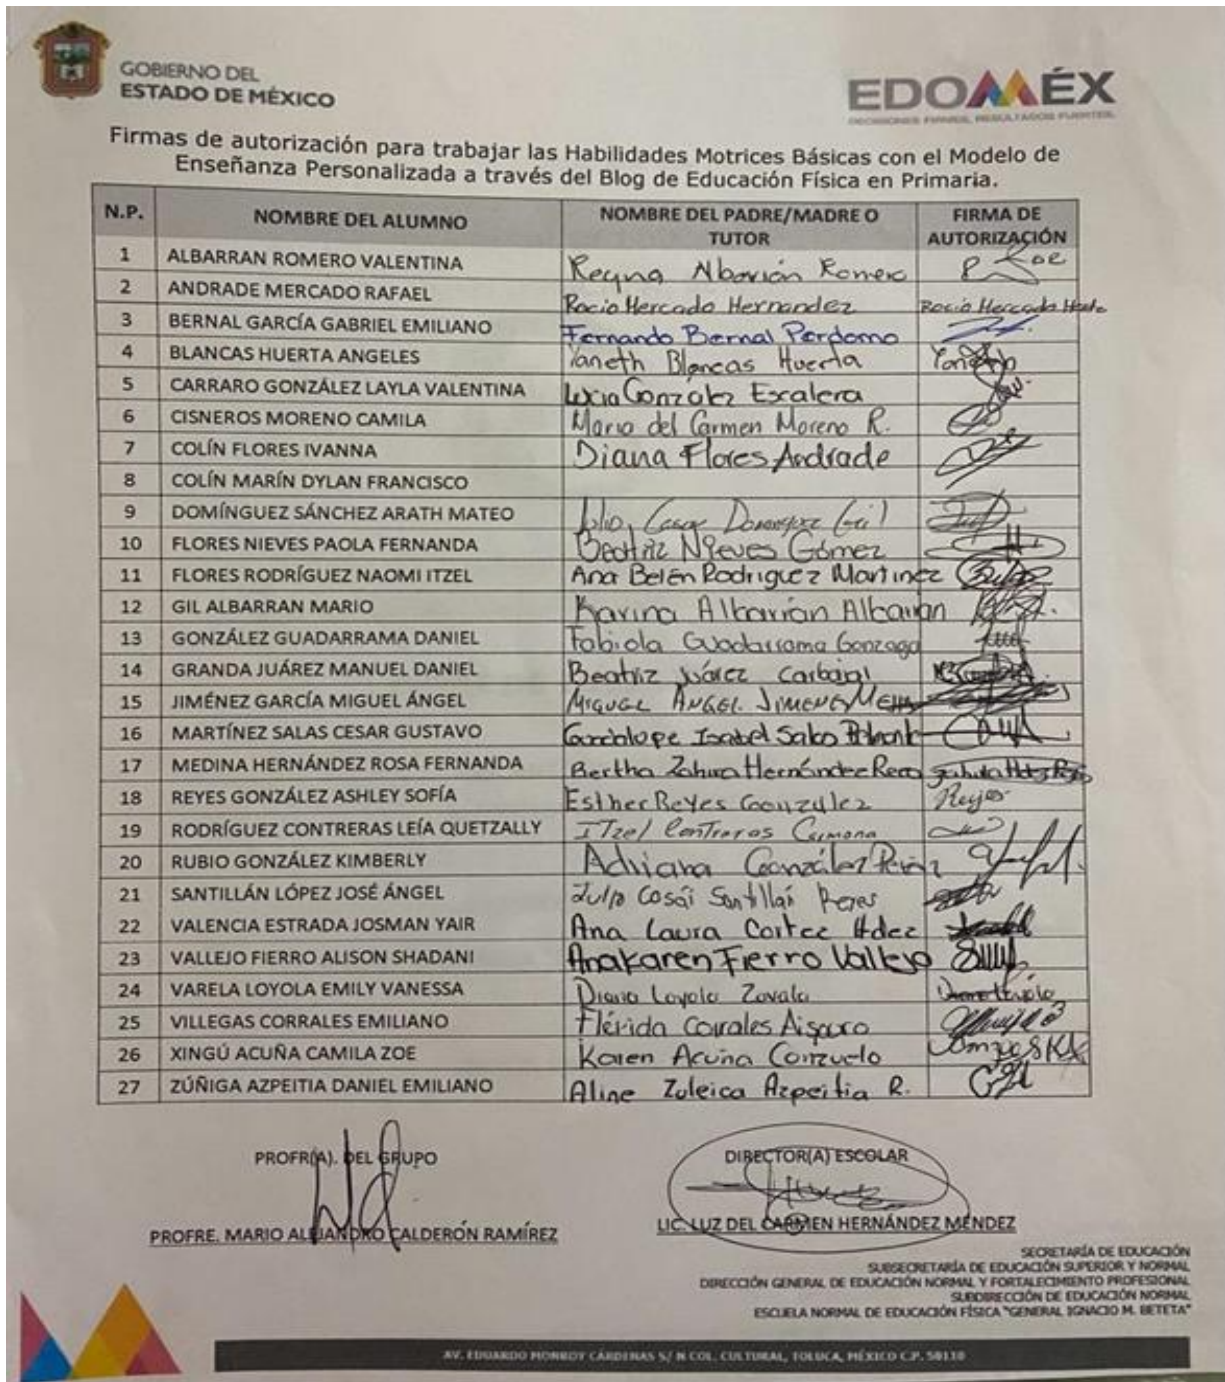 GOBIERNO DEL
ESTADO DE MÉXICO
EDOMÉX
DECISIONES FIRMES, RESULTADOS FUERTES.
Firmas de autorización para trabajar las Habilidades Motrices Básicas con el Modelo de
Enseñanza Personalizada a través del Blog de Educación Física en Primaria.
N.P. NOMBRE DEL ALUMNO NOMBRE DEL PADRE/MADRE O TUTOR FIRMA DE AUTORIZACIÓN
1 ALBARRAN ROMERO VALENTINA Reyna Albarrán Romero
2 ANDRADE MERCADO RAFAEL Rocio Mercado Hernandez Rocio Mercado
3 BERNAL GARCÍA GABRIEL EMILIANO Fernando Bernal Perdomo
4 BLANCAS HUERTA ANGELES Yaneth Blancas Huerta Yaneth
5 CARRARO GONZÁLEZ LAYLA VALENTINA González Escalera
6 CISNEROS MORENO CAMILA Maria del Carmen Moreno R.
7 COLÍN FLORES IVANNA Diana Flores Andrade
8 COLÍN MARÍN DYLAN FRANCISCO
9 DOMÍNGUEZ SÁNCHEZ ARATH MATEO Julio Cesar Dominguez Gil
10 FLORES NIEVES PAOLA FERNANDA Beatriz Nieves Gómez
11 FLORES RODRÍGUEZ NAOMI ITZEL Ana Belén Rodriguez Martinez
12 GIL ALBARRAN MARIO Karina Albarrán Albarrán
13 GONZÁLEZ GUADARRAMA DANIEL Fabiola Guadarrama Gonzaga
14 GRANDA JUÁREZ MANUEL DANIEL Beatriz Juárez Carbajal
15 JIMÉNEZ GARCÍA MIGUEL ÁNGEL MIGUEL ÁNGEL JIMENEZ
16 MARTÍNEZ SALAS CESAR GUSTAVO Guadalupe Isabel Salas
17 MEDINA HERNÁNDEZ ROSA FERNANDA Bertha Zahira Hernández
18 REYES GONZÁLEZ ASHLEY SOFÍA Esther Reyes Gonzulez Reyes
19 RODRÍGUEZ CONTRERAS LEÍA QUETZALLY ITzel Contreras Carmona
20 RUBIO GONZÁLEZ KIMBERLY Adriana González Pérez
21 SANTILLÁN LÓPEZ JOSÉ ÁNGEL Reyes
22 VALENCIA ESTRADA JOSMAN YAIR Ana Laura Cortez Hdez
23 VALLEJO FIERRO ALISON SHADANI Anakaren Fierro Vallejo
24 VARELA LOYOLA EMILY VANESSA Diana Loyola Zavala
25 VILLEGAS CORRALES EMILIANO Flérida Corrales
26 XINGÚ ACUÑA CAMILA ZOE Karen Acuña Conzuelo
27 ZÚÑIGA AZPEITIA DANIEL EMILIANO Aline Zuleica Azpeitia R.
PROFR(A). DEL GRUPO DIRECTOR(A) ESCOLAR
PROFRE. MARIO ALEJANDRO CALDERÓN RAMÍREZ LIC. LUZ DEL CARMEN HERNÁNDEZ MÉNDEZ
SECRETARÍA DE EDUCACIÓN
SUBSECRETARÍA DE EDUCACIÓN SUPERIOR Y NORMAL
DIRECCIÓN GENERAL DE EDUCACIÓN NORMAL Y FORTALECIMIENTO PROFESIONAL
SUBDIRECCIÓN DE EDUCACIÓN NORMAL
ESCUELA NORMAL DE EDUCACIÓN FÍSICA "GENERAL IGNACIO M. BETETA"
AV. EDUARDO MONROY CÁRDENAS S/ N COL. CULTURAL, TOLUCA, MÉXICO C.P. 50110